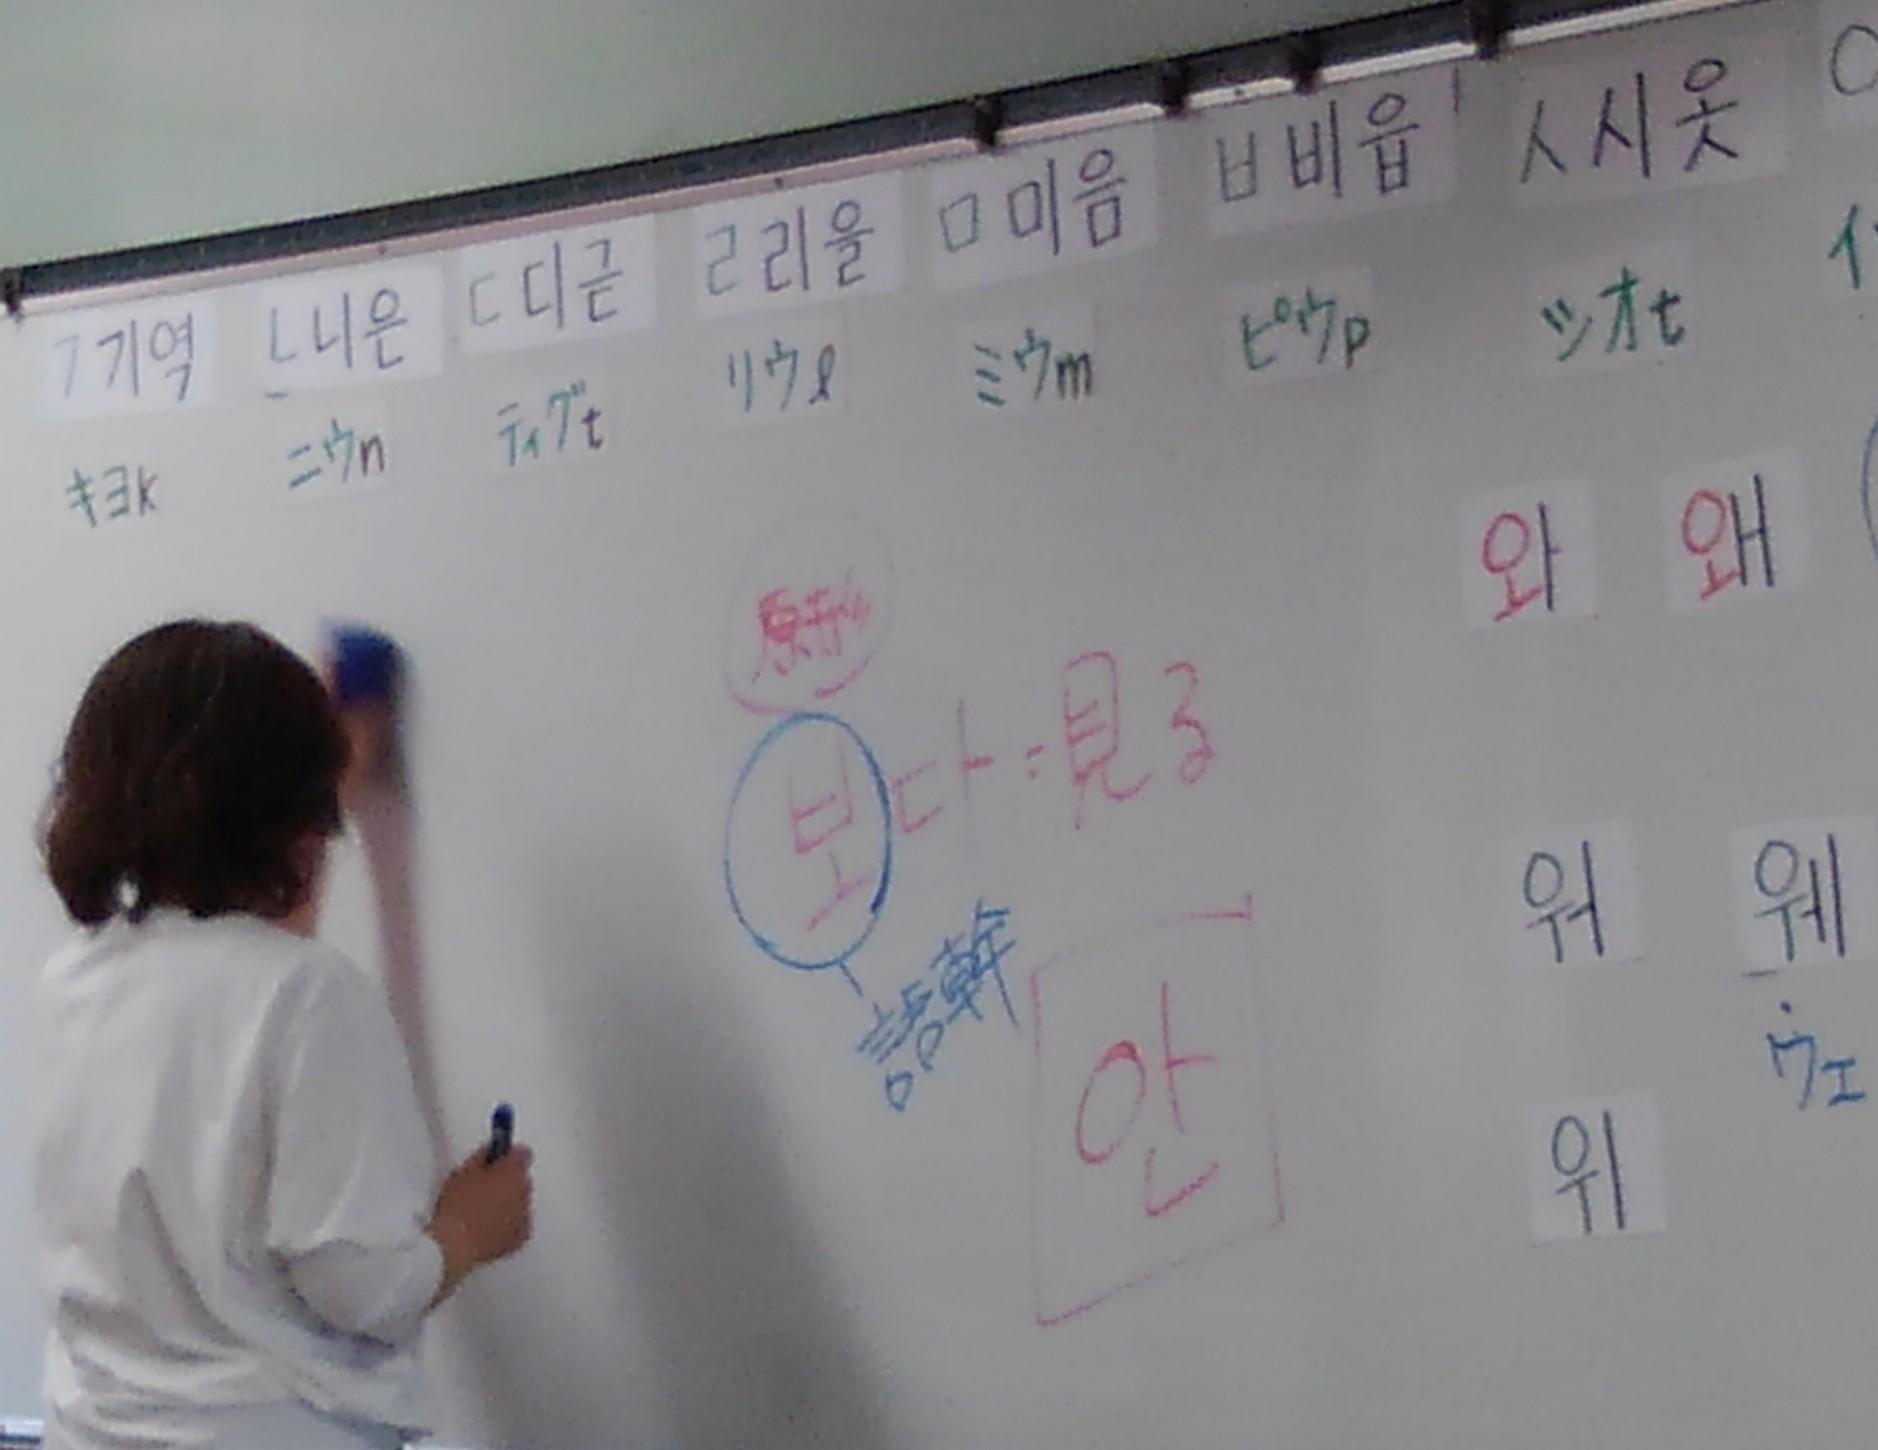 ㄱ 기역 ㄴ 니은 ㄷ 디귿 ㄹ 리을 ㅁ 미음 ㅂ 비읍 ㅅ 시옷
キヨk ニウn ティグt リウl ミウm ピウp ツオt イ
와 왜
原形
보다:見る
語幹
워 웨
ウェ
안
위